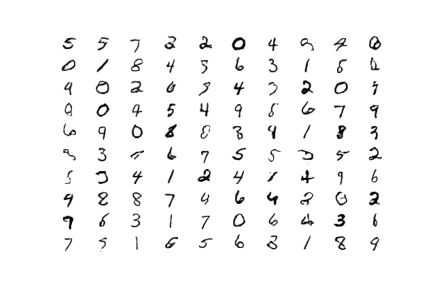 5 5 7 2 2 0 4 9 4 0
0 1 8 4 5 6 3 1 5 2
9 0 2 6 5 4 5 2 0 7
0 0 4 5 4 9 5 6 7 9
6 9 0 8 8 3 9 1 8 3
3 3 6 7 5 5 5 2
5 5 4 1 2 4 1 4 9 6
9 8 8 7 4 6 4 2 0 2
9 6 3 1 7 0 6 4 3 6
7 5 1 6 5 6 8 1 8 9